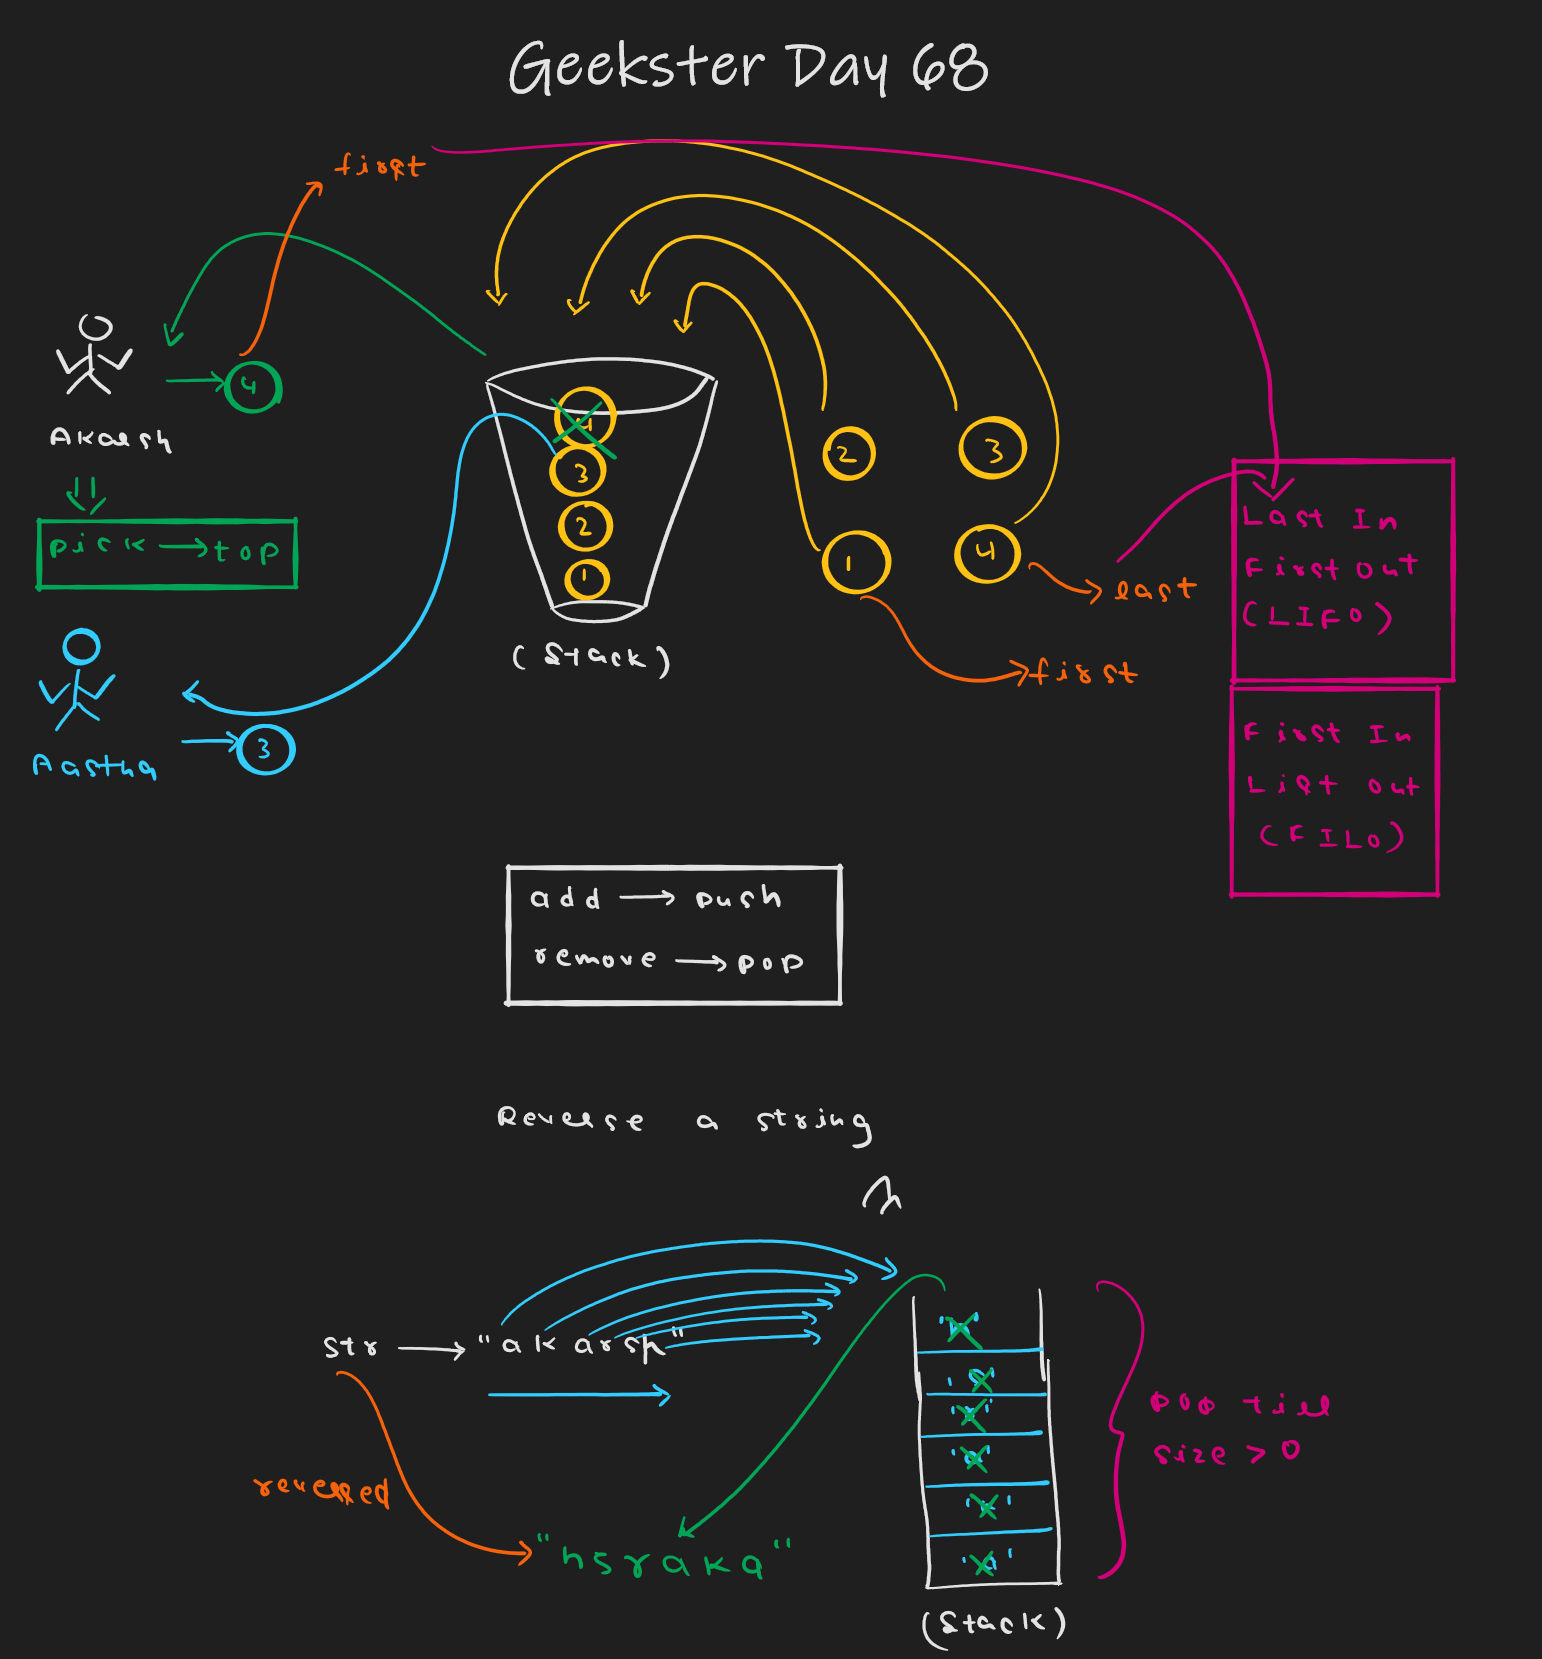 Geekster Day 68
first
4
Akarsh
pick → top
Aastha
3
4
3
2
1
(Stack)
2
3
1
4
last
first
Last In
First Out
(LIFO)
First In
List Out
(FILO)
add → push
remove → pop
Reverse a string
str → "akarsh"
reversed
"hsraka"
'h'
's'
'r'
'a'
'k'
'a'
(Stack)
pop till
size > 0